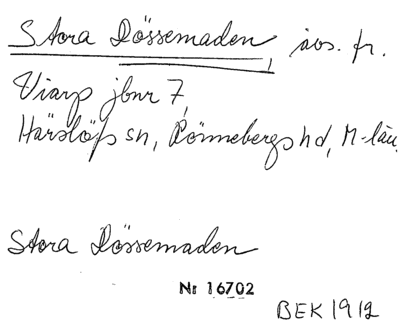 Stora Dössemaden, avs. fr.
Viarp jbnr 7,
Härslöfs sn, Rönnebergs hd, M-län,
Stora Dössemaden
Nr 16702
BEK 1912